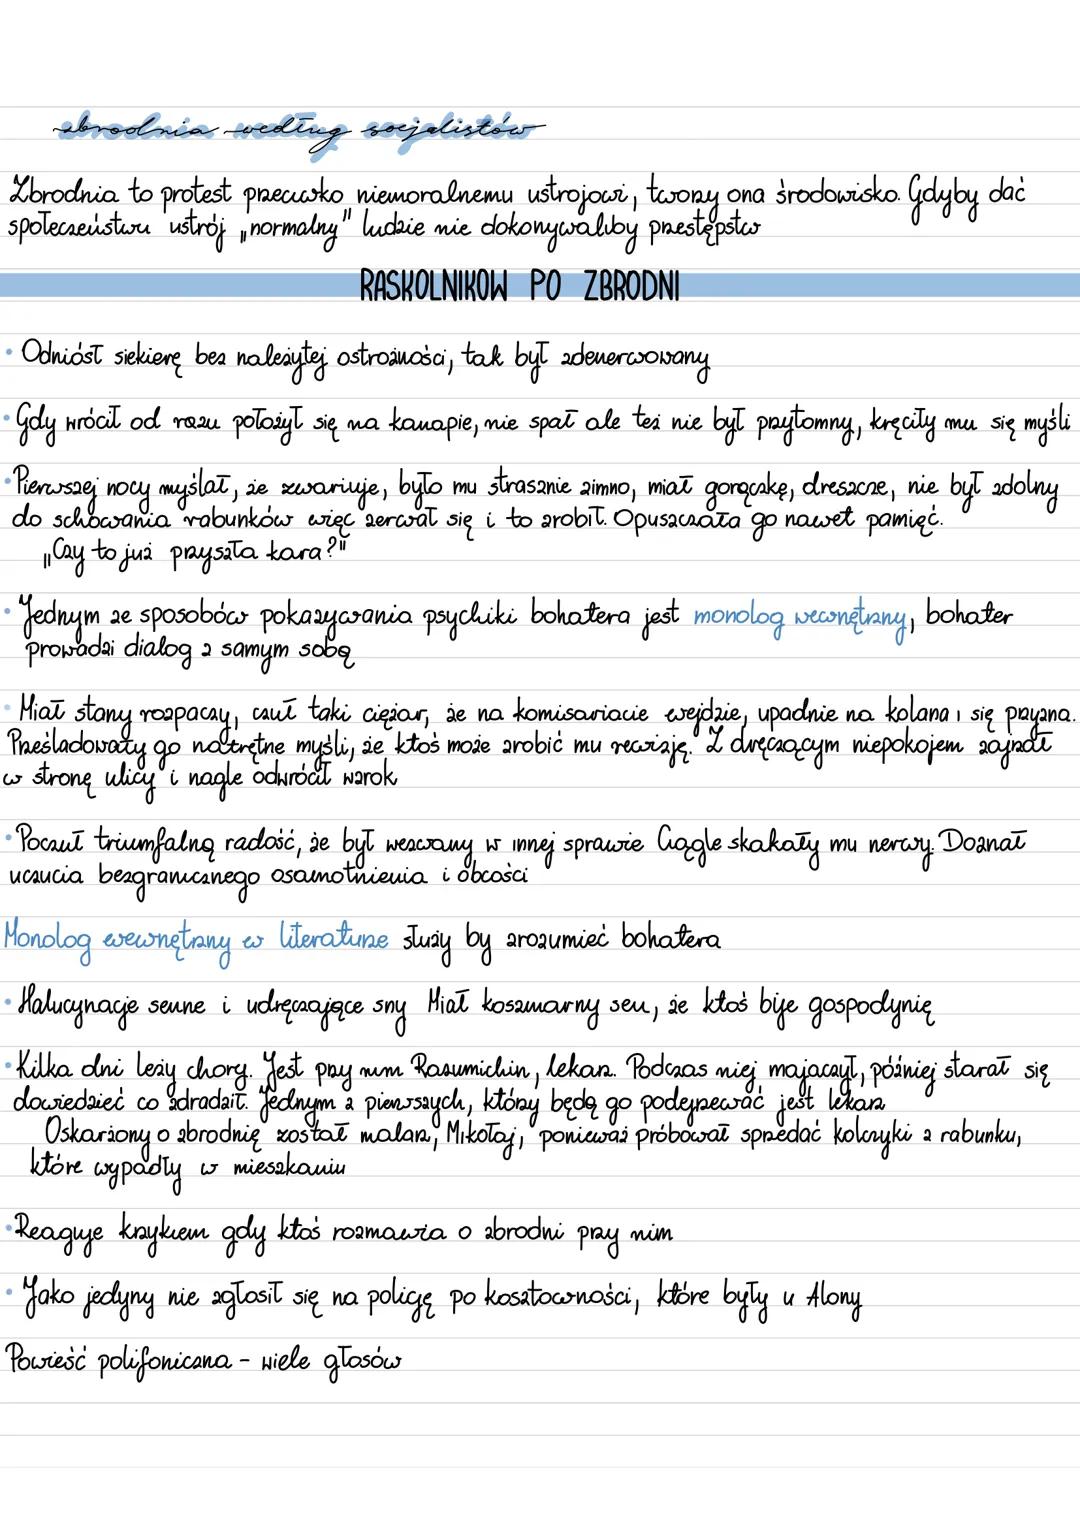 zbrodnia według socjalistów
Zbrodnia to protest przeciwko niemoralnemu ustrojowi, tworzy ona środowisko. Gdyby dać
społeczeństwu ustrój „normalny" ludzie nie dokonywaliby przestępstw
RASKOLNIKOW PO ZBRODNI
• Odniósł siekierę bez należytej ostrożności, tak był zdenerwowany
• Gdy wrócił od razu położył się na kanapie, nie spał ale też nie był przytomny, kręciły mu się myśli
• Pierwszej nocy myślał, że zwariuje, było mu strasznie zimno, miał gorączkę, dreszcze, nie był zdolny
do schowania rabunków więc zerwał się i to zrobił. Opuszczała go nawet pamięć.
„Czy to już przyszła kara?"
• Jednym ze sposobów pokazywania psychiki bohatera jest monolog wewnętrzny, bohater
prowadzi dialog z samym sobą
• Miał stany rozpaczy, czuł taki ciężar, że na komisariacie wejdzie, upadnie na kolana i się przyzna.
Prześladowały go natrętne myśli, że ktoś może zrobić mu rewizję. "Z dręczącym niepokojem zajrzał
w stronę ulicy" i nagle odwrócił wzrok
• Poczuł triumfalną radość, że był wezwany w innej sprawie Ciągle skakały mu nerwy. Doznał
uczucia bezgranicznego osamotnienia i obcości
Monolog wewnętrzny w literaturze służy by zrozumieć bohatera
• Halucynacje senne i udręczające sny Miał koszmarny sen, że ktoś bije gospodynię
• Kilka dni leży chory. Jest przy nim Razumichin, lekarz. Podczas niej majaczył, później starał się
dowiedzieć co zdradził. Jednym z pierwszych, którzy będą go podejrzewać jest lekarz
Oskarżony o zbrodnię został malarz, Mikołaj, ponieważ próbował sprzedać kolczyki z rabunku,
które wypadły w mieszkaniu
• Reaguje krzykiem gdy ktoś rozmawia o zbrodni przy nim
• Jako jedyny nie zgłosił się na policję po kosztowności, które były u Alony
Powieść polifoniczna - wiele głosów